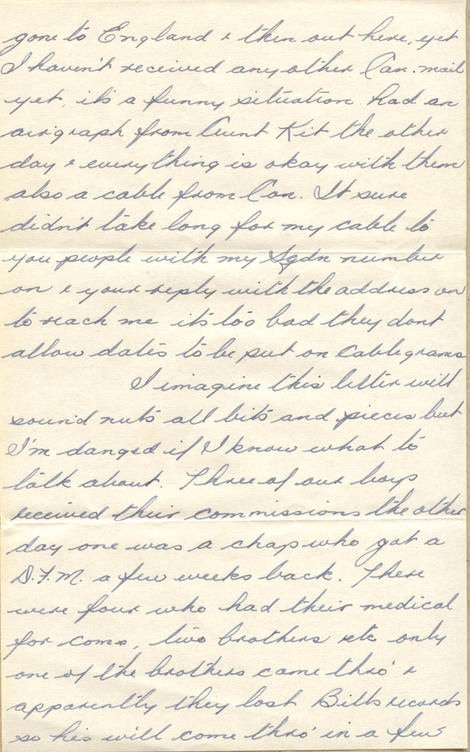 gone to England & then out here, yet
I haven't received any other Can. mail
yet, it's a funny situation. had an
airgraph from Aunt Kit the other
day & everything is okay with them
also a cable from Can. It sure
didn't take long for my cable to
you people with my Sqdn number
on & your reply with the address on
to reach me it's too bad they dont
allow dates to be put on cablegrams
I imagine this letter will
sound nuts all bits and pieces but
I'm danged if I know what to
talk about. Three of our boys
received their commissions the other
day one was a chap who got a
D.F.M. a few weeks back. There
were four who had their medical
for coms, two brothers etc only
one of the brothers came thro' &
apparently they lost Bills records
so his will come thro' in a few